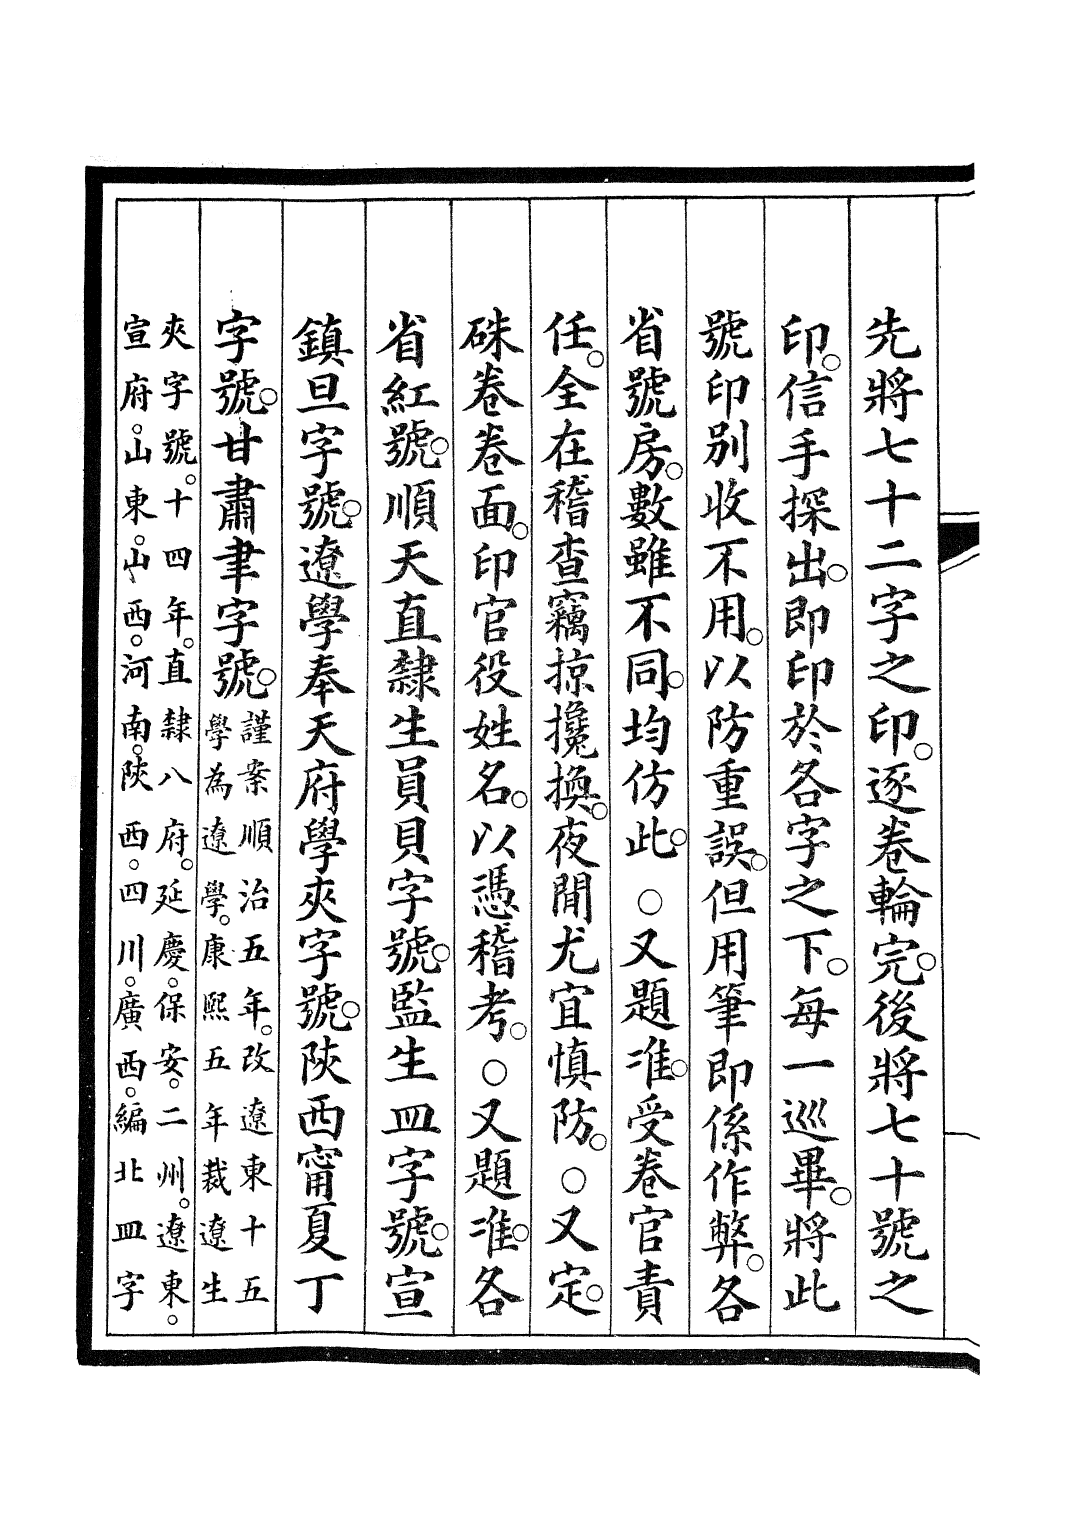 先將七十二字之印。逐卷輪完。後將七十號之
印。信手探出。即印於各字之下。每一巡畢。將此
號印別收不用。以防重誤。但用筆即係作弊。各
省號房。數雖不同。均仿此。○又題准。受卷官責
任。全在稽查竊掠攙換。夜閒尤宜慎防。○又定。
硃卷卷面。印官役姓名。以憑稽考。○又題准。各
省紅號。順天直隸生員貝字號。監生皿字號。宣
鎮旦字號。遼學奉天府學夾字號。陝西甯夏丁
字號。甘肅聿字號。謹案順治五年。改遼東十五
學為遼學。康熙五年裁遼生
夾字號。十四年。直隸八府。延慶。保安。二州。遼東。
宣府。山東。山西。河南。陝西。四川。廣西。編北皿字